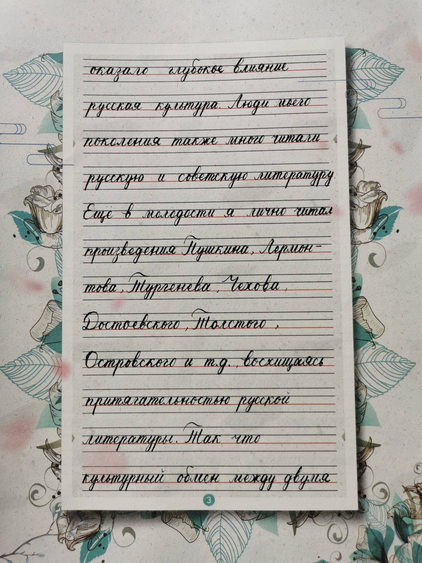 оказало глубокое влияние
русская культура. Люди моего
поколения также много читали
русскую и советскую литературу
Ещё в молодости я лично читал
произведения Пушкина, Лермон-
това, Тургенева, Чехова,
Достоевского, Толстого,
Островского и т.д., восхищаясь
притягательностью русской
литературы. Так что
культурный обмен между двумя
3